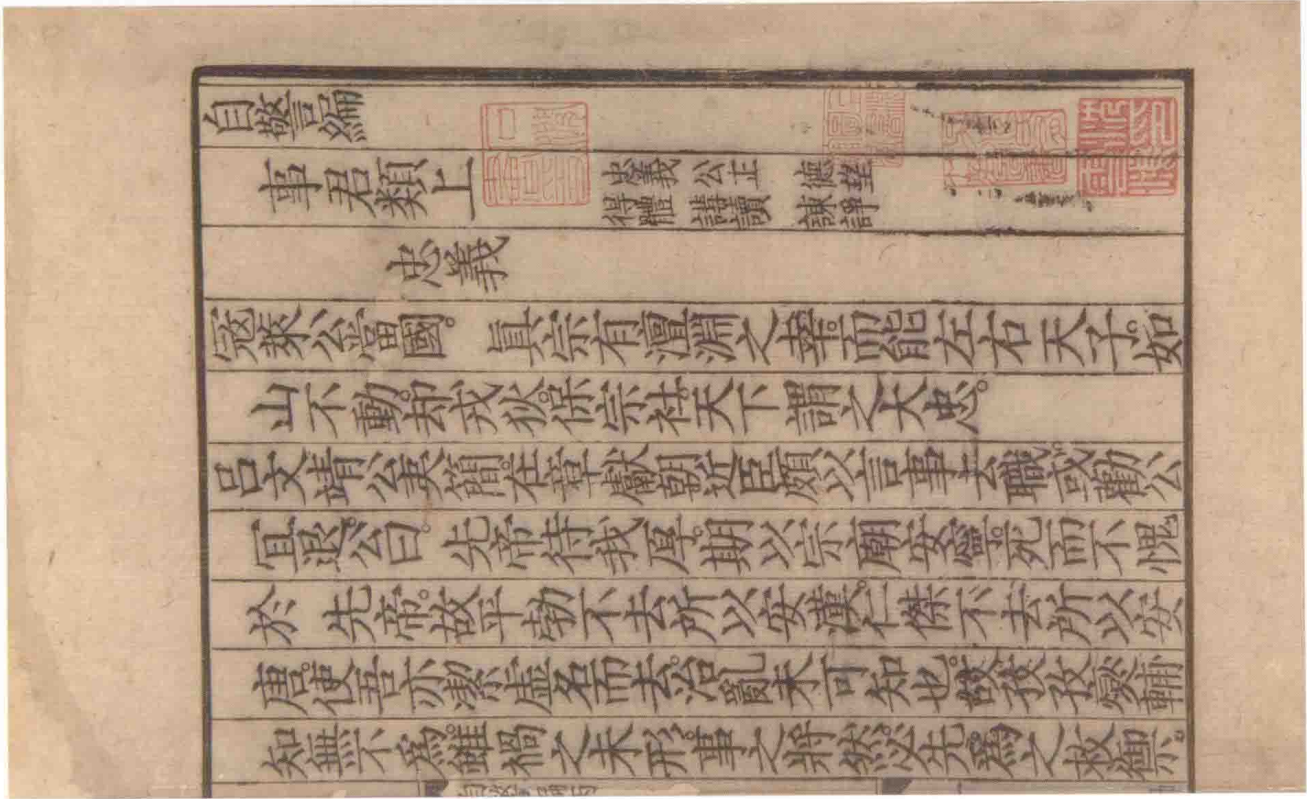 自警編
事君類上 忠義 公正 德望 得體 講讀 諫諍
忠義
寇萊公當國。 真宗有澶淵之幸。而能左右天子。如
山不動。却戎狄。保宗社。天下謂之大忠。
呂文靖公夷簡。在章獻朝。近臣頗以言事去職。或勸公
宜退。公曰。 先帝待我厚。期以宗廟安寧。死而不愧
於 先帝。故平勃不去。所以安漢。仁傑不去。所以安
唐。使吾亦潔虛名而去。治亂未可知也。故孜孜燮輔
知無不爲。雖禍之未形。事之將然。必先爲之救禦。